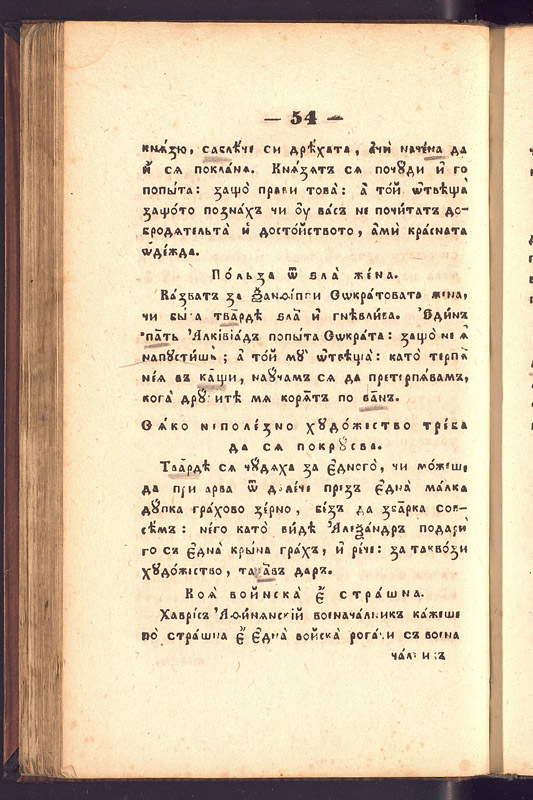 — 54 —
кнѧ́зю, саблѐче си дрѣ́хата, а́чи наче́на да
и҆ сѧ поклáнѧ. Кнѧ́зѧтъ сѧ почꙋди и҆ го
попы́та: защо̀ прави това̀: а҆ то́й ѿтвѣща̀
защо́то позна́хъ чи оу҆ ва́съ не почи́татъ до-
бродѧ́тельта̀ и҆ досто́йството, а҆ми̂ кра́сната
ѡ҆де́жда.
По́льза ѿ ѕла̀ же́на.
Ка́зватъ за Ѯанѳі́ппи Сѡкра́товата жена,
чи бы́ла твардѣ ѕла̀ и҆ гнѣвли́ва. Е҆ди́нъ
пѫть А҆лкївїа́дъ попы́та Сѡкра́та: защо̀ не ѧ҆
напꙋстишь; а҆ то́й мꙋ̀ ѿтвѣща̀: като̀ терпѧ̀
не́ѧ въ ка́щи, наꙋча́мъ сѧ да претерпѧ́вамъ,
кога̀ дрꙋ́гитѣ мѧ корѧ́тъ по ва́нъ.
Сѧ́ко неполе́зно хꙋдо́жество тре́ба
да сѧ покрꙋсва.
Твардѣ сѧ чꙋ́дѧха за е҆дного̀, чи мо́жеше
да при арва ѿ дале́че презъ е҆дна̀ ма́лка
дꙋпка гра́хово зе́рно, бе́зъ да зба́рка сов-
се́мъ: него като̀ ви́дѣ А҆леѯа́ндръ подари̂
го съ е҆дна̀ кры́на гра́хъ, и҆ ре́че: за такво́зи
хꙋдо́жество, така́въ даръ.
Коѧ̀ войска̀ е҆ стра́шна.
Хаврі́съ А҆ѳи́нѧнскїй военача́лникъ ка́жеше
по̀ стра́шна е҆ е҆дна̀ войска̀ рогачи съ воена
ча́лникъ